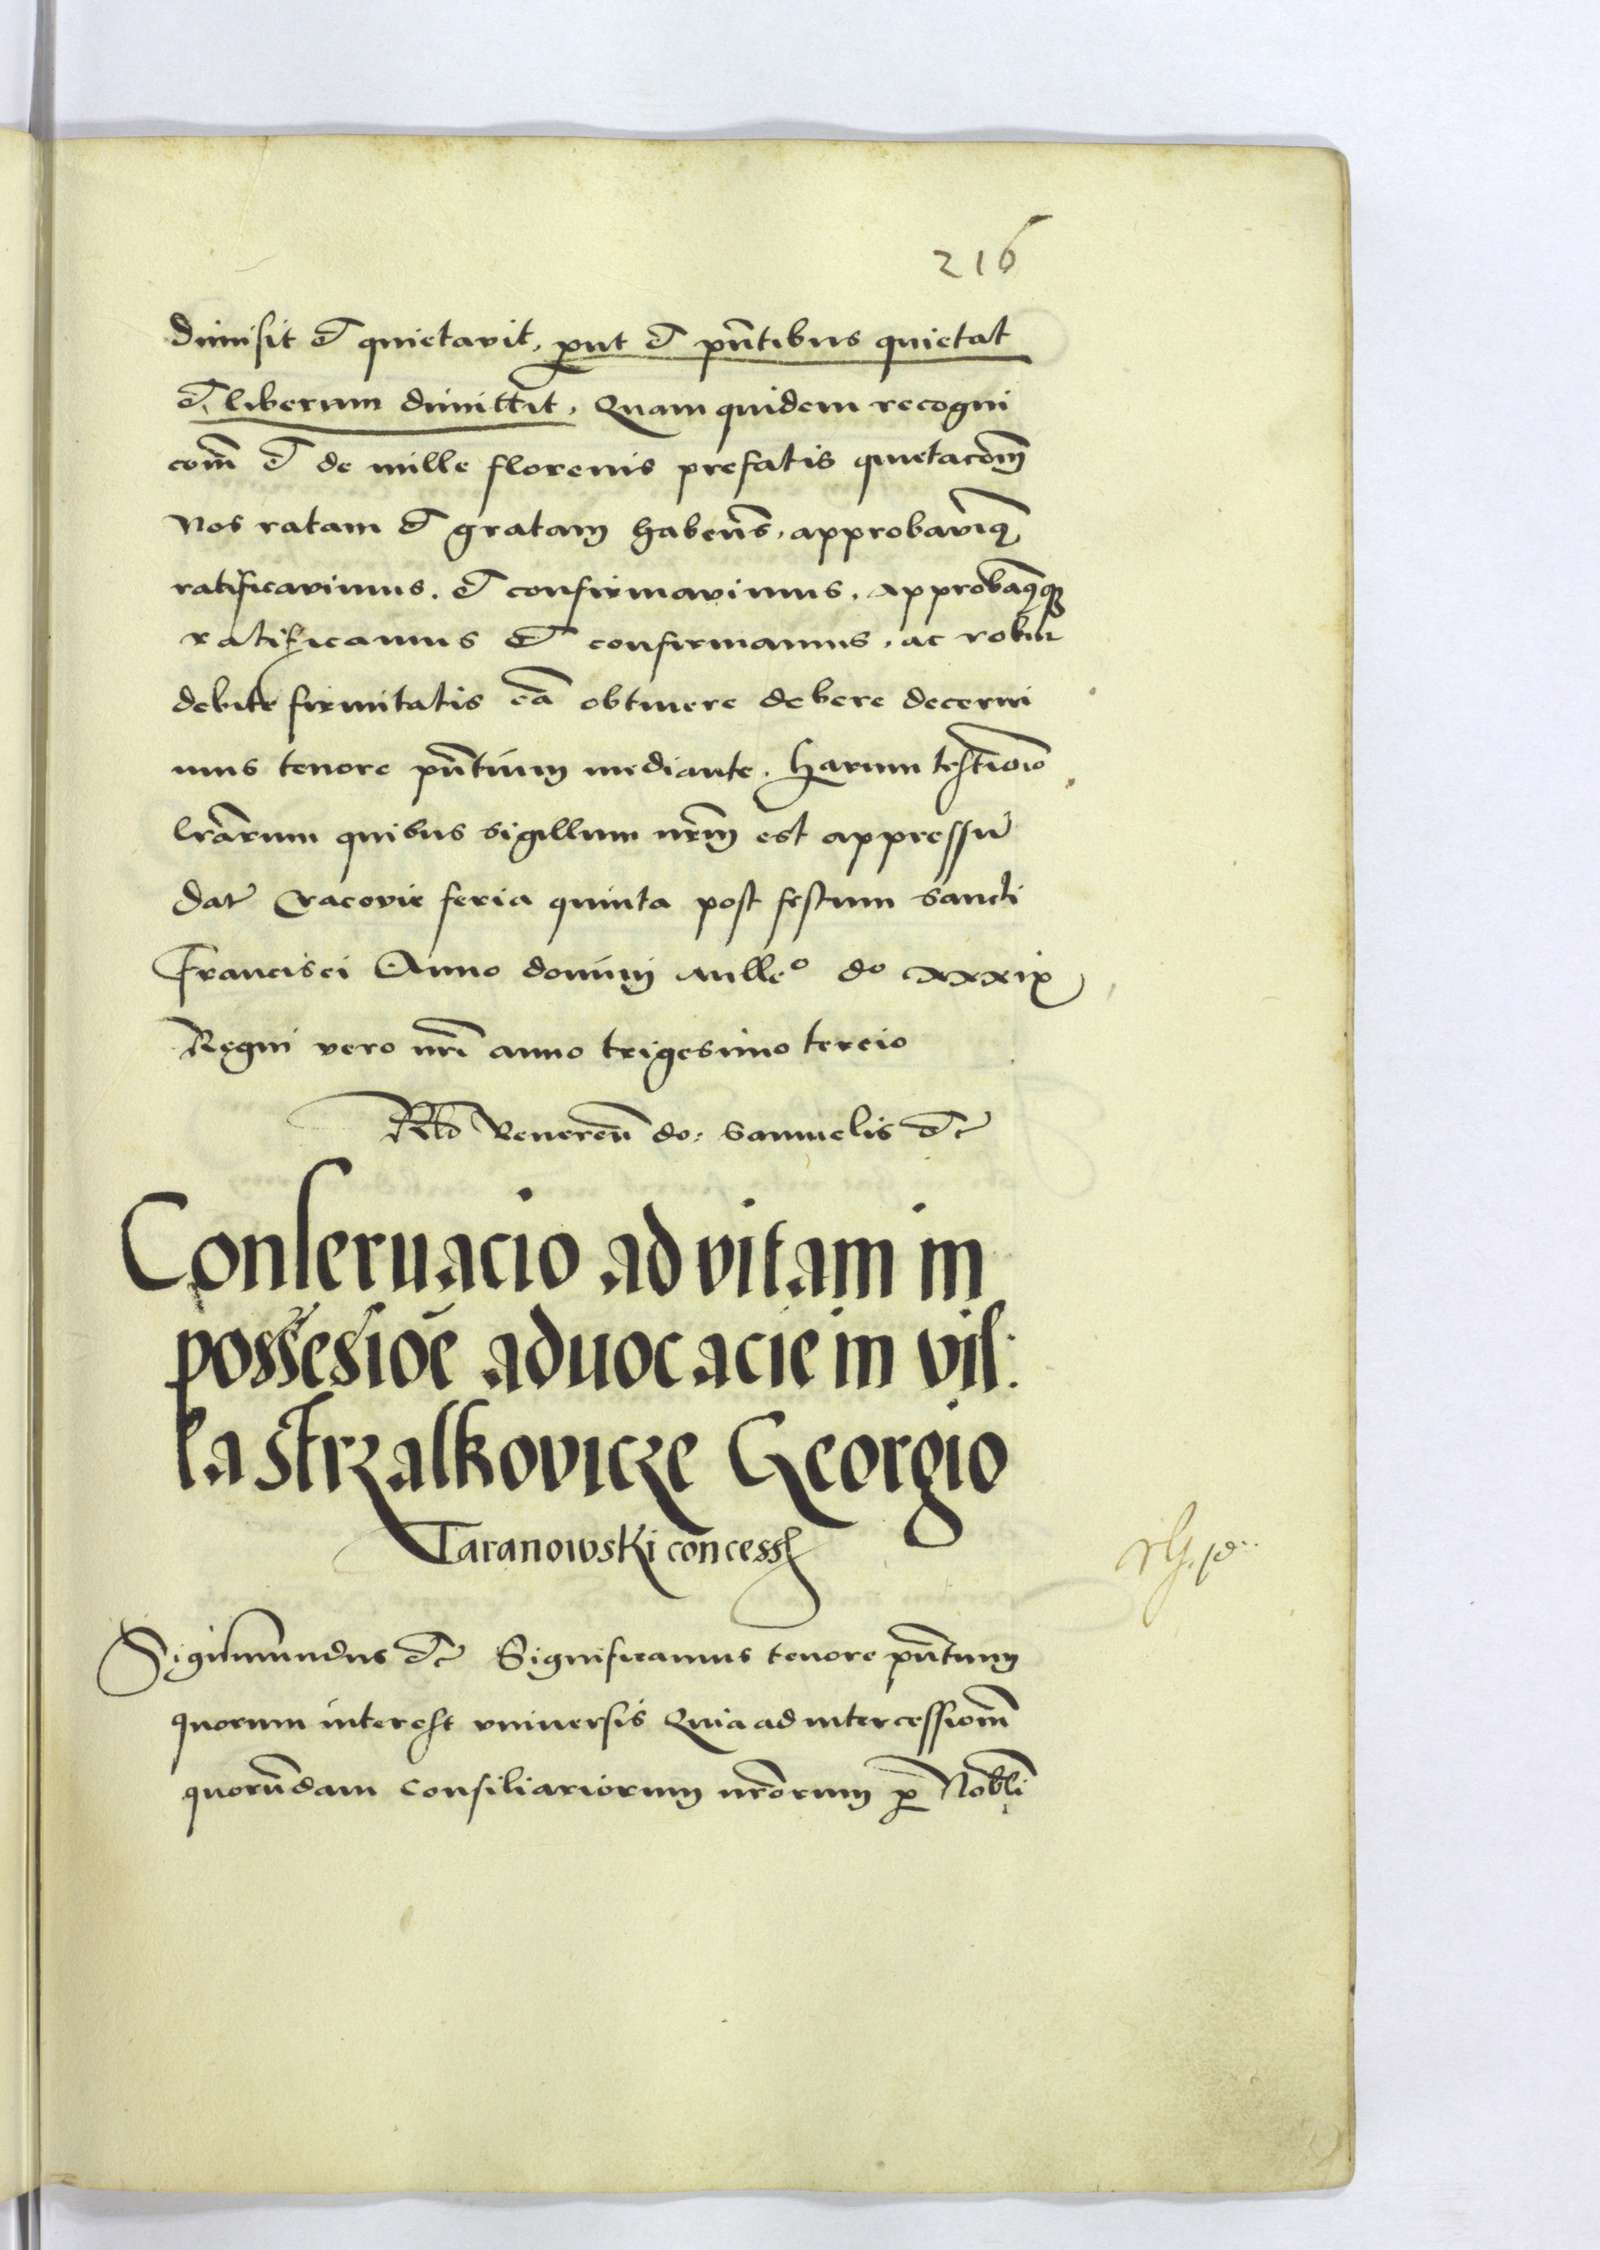 216
dimisit et quietavit, put et pñtibus quietat
et liberum dimittit, Quam quidem recogni
com̃ et de mille florenis prefatis quietacom̃
Nos ratam et gratam habeñs, approbavimꝰ
ratificavimus. et confirmavimus. approbamꝰqꝫ
ratificamus et confirmamus. ac robur
debite firmitatis eã obtinere debere decerni
mus tenore pñtium mediante. Harum testimoĩo
lr̃arum quibus sigillum nr̃m est appressũ
dat̃ Cracovie feria quinta post festum sancti
Francisci Anno domini Mille° d° xxxix
Regni vero nr̃i anno trigesimo tercio
Rl̃o Venereñ do: Samuelis etc
Conseruacio ad vitam in
possessioẽ aduocacie in vil:
la strzalkovicze Georgio
Taranowski concess
Sigismundus etc Significamus tenore pñtium
quorum interest universis Quia ad intercessionem̃
quorũdam consiliariorum nr̃orum p̱ Nobli